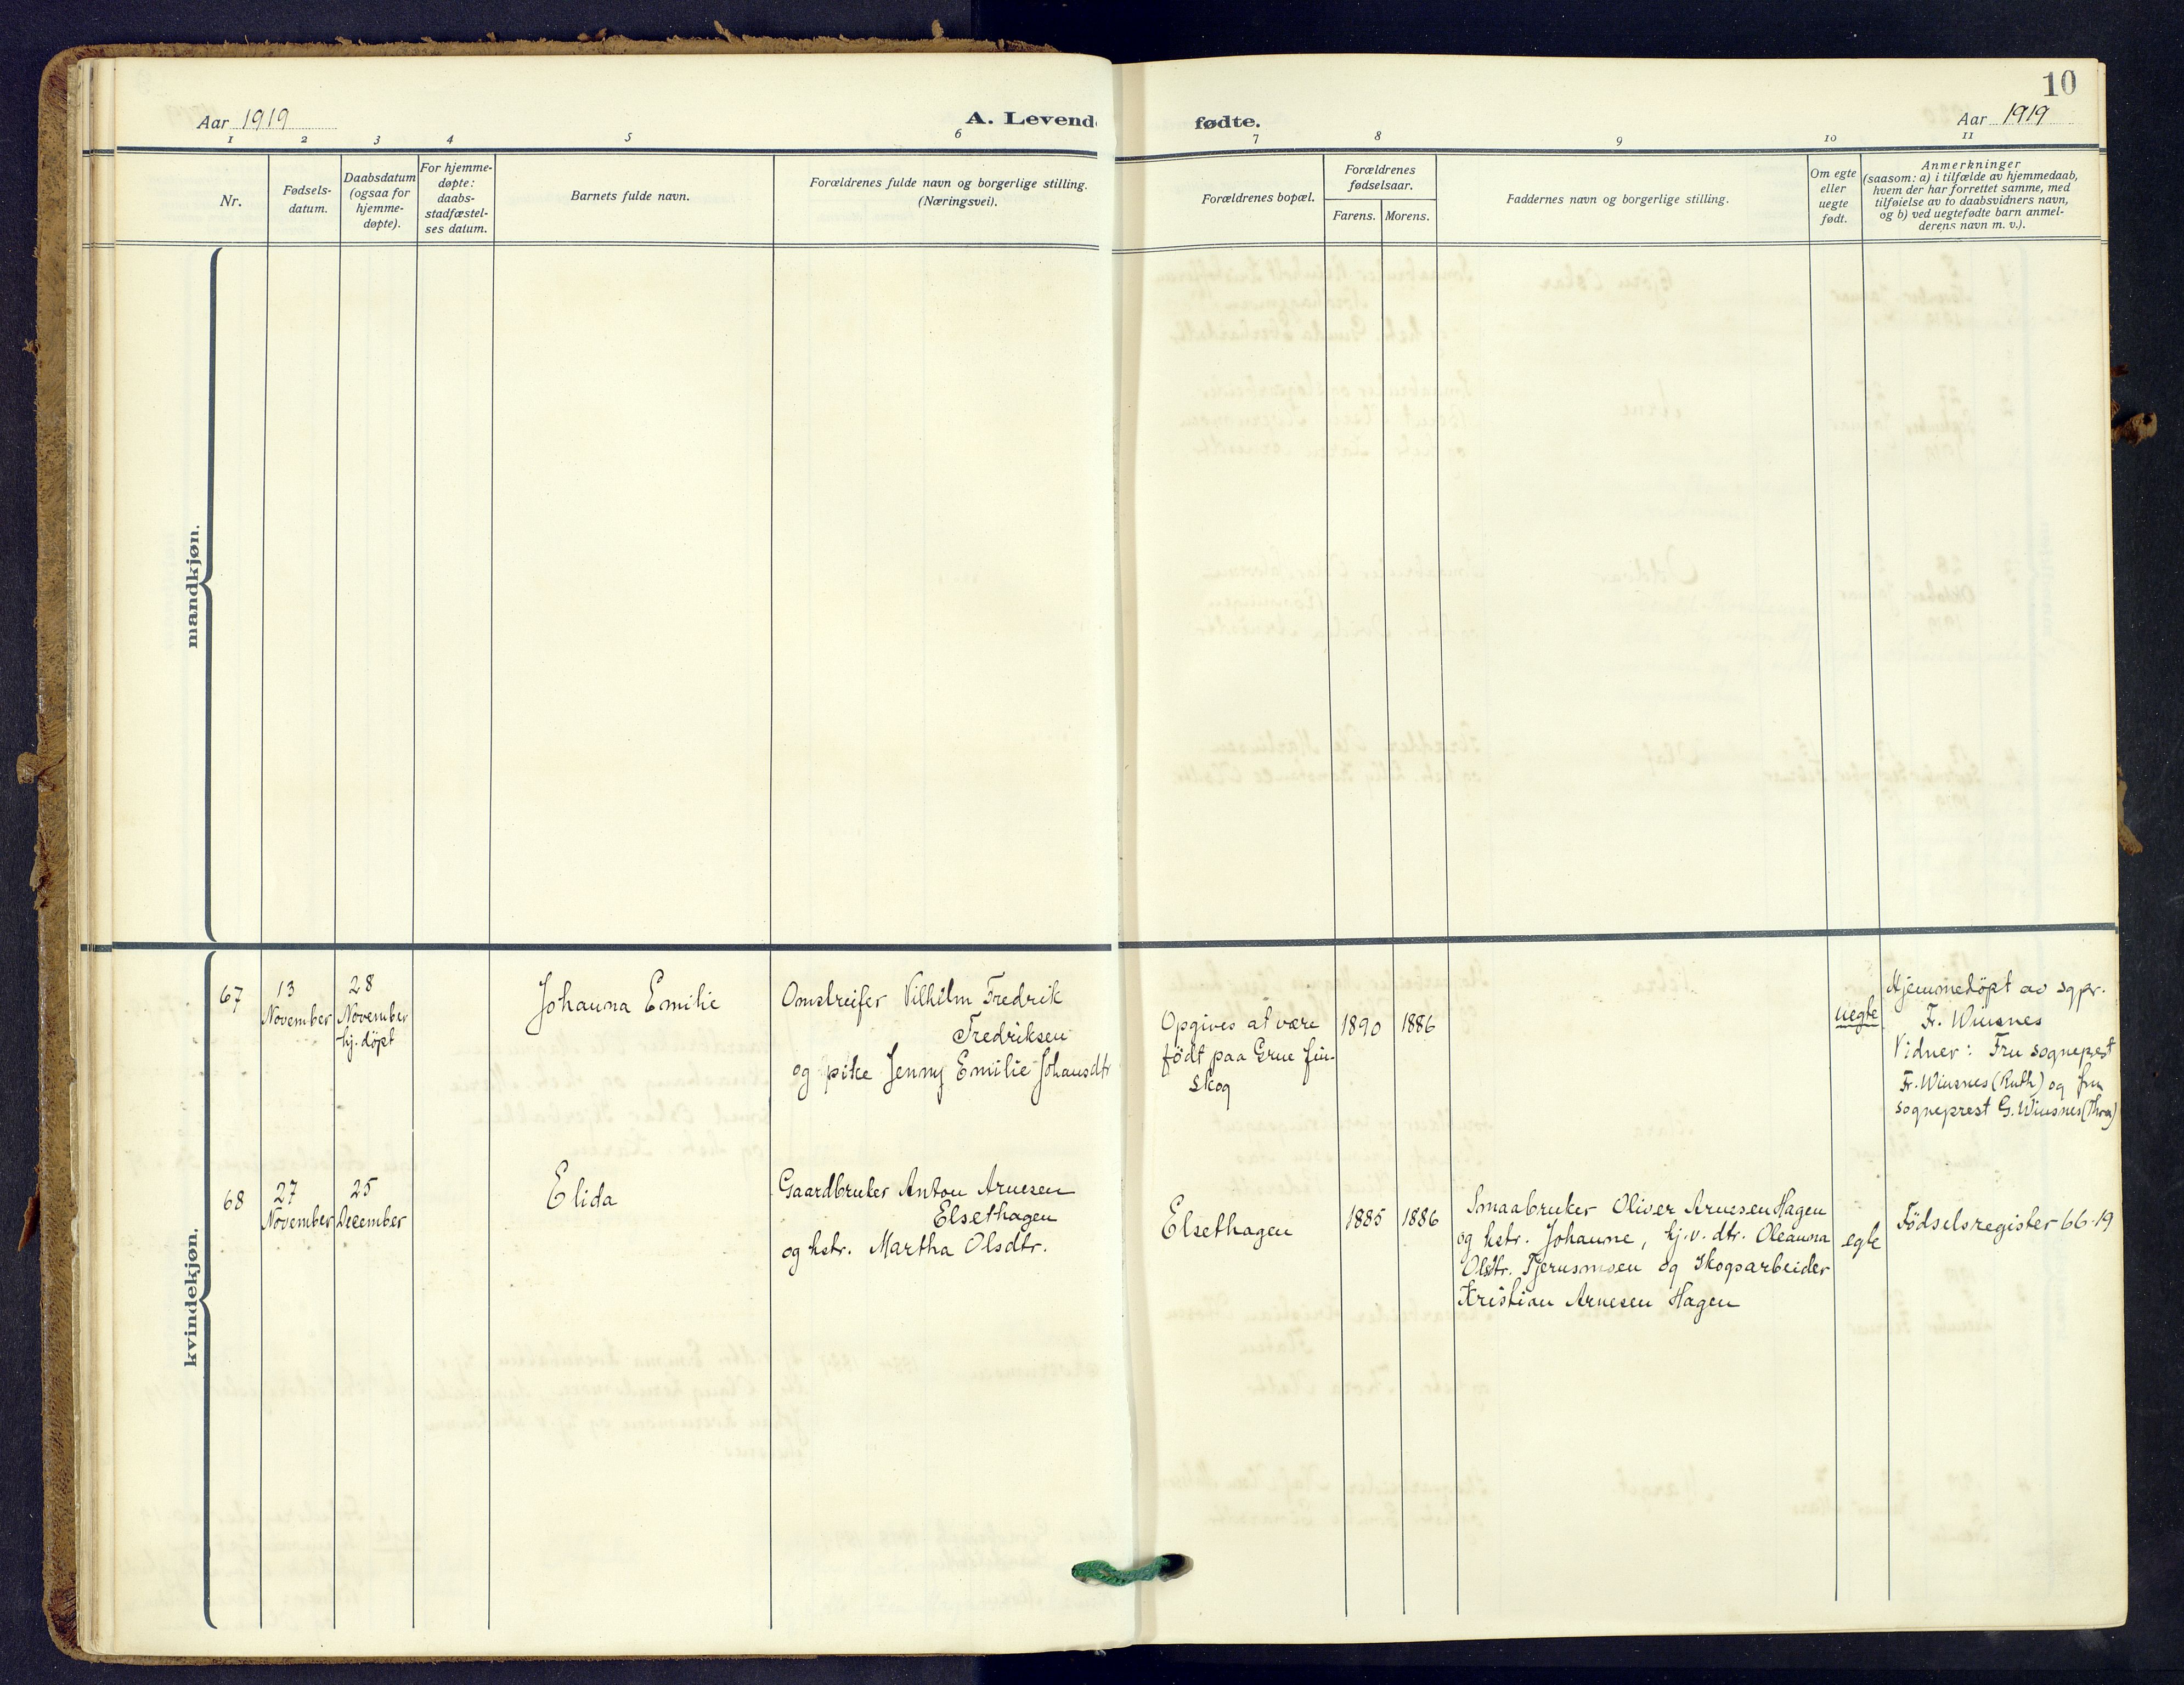 10
Aar 1919
A. Levende
fødte.
Aar 1919
1 2 3 4 5 6 7 8 9 10 11
Nr.
Fødsels-
datum.
Daabsdatum
(ogsaa for
hjemme-
døpte).
For hjemme-
døpte:
daabs-
stadfæstel-
ses datum.
Barnets fulde navn.
Forældrenes fulde navn og borgerlige stilling.
(Næringsvei).
Forældrenes bopæl.
Forældrenes
fødselsaar.
Farens. Morens.
Faddernes navn og borgerlige stilling.
Om egte
eller
uegte
født.
Anmerkninger
(saasom: a) i tilfælde av hjemmedaab,
hvem der har forrettet samme, med
tilføielse av to daabsvidners navn,
og b) ved uegtefødte barn anmel-
derens navn m. v.).
mandkjøn.
kvindekjøn.
67
13
November
28
November
hj. døpt
Johanna Emilie
Omstreifer Vilhelm Fredrik
Fredriksen
og pike Jenny Emilie Johansdtr
Opgives at være
født paa Grue fin-
skog
1890
1886
uegte
Hjemmedøpt av sgpr.
Fr. Wiisnes
Vidner: Fru sogneprest
Fr. Wiisnes (Ruth) og fru
sogneprest G. Wiisnes (Thora)
68
27
November
25
December
Elida
Gaardbruker Anton Arnesen
Elsethagen
og hstr. Martha Olsdtr.
Elsethagen
1885
1886
Smaabruker Oliver Arnesen Hagen
og hstr. Johanne, hj.v. dtr. Oleanna
Olsdtr. Tjernsmoen og Skogsarbeider
Kristian Arnesen Hagen
egte
Fødselsregister 66-19